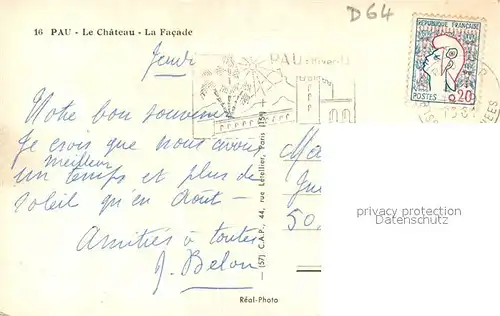 D64
16 PAU - Le Château - La Façade
REPUBLIQUE FRANÇAISE
Jeudi
PAU
POSTES 0,20
Notre bon souvenir
Je crois que nous avons
meilleur
un temps et plus de
soleil qu'en Août -
Amitiés à toutes
J. Belon
- (57) C.A.P., 44, rue Letellier, Paris (15e)
Ma
50.
privacy protection
Datenschutz
Réal-Photo